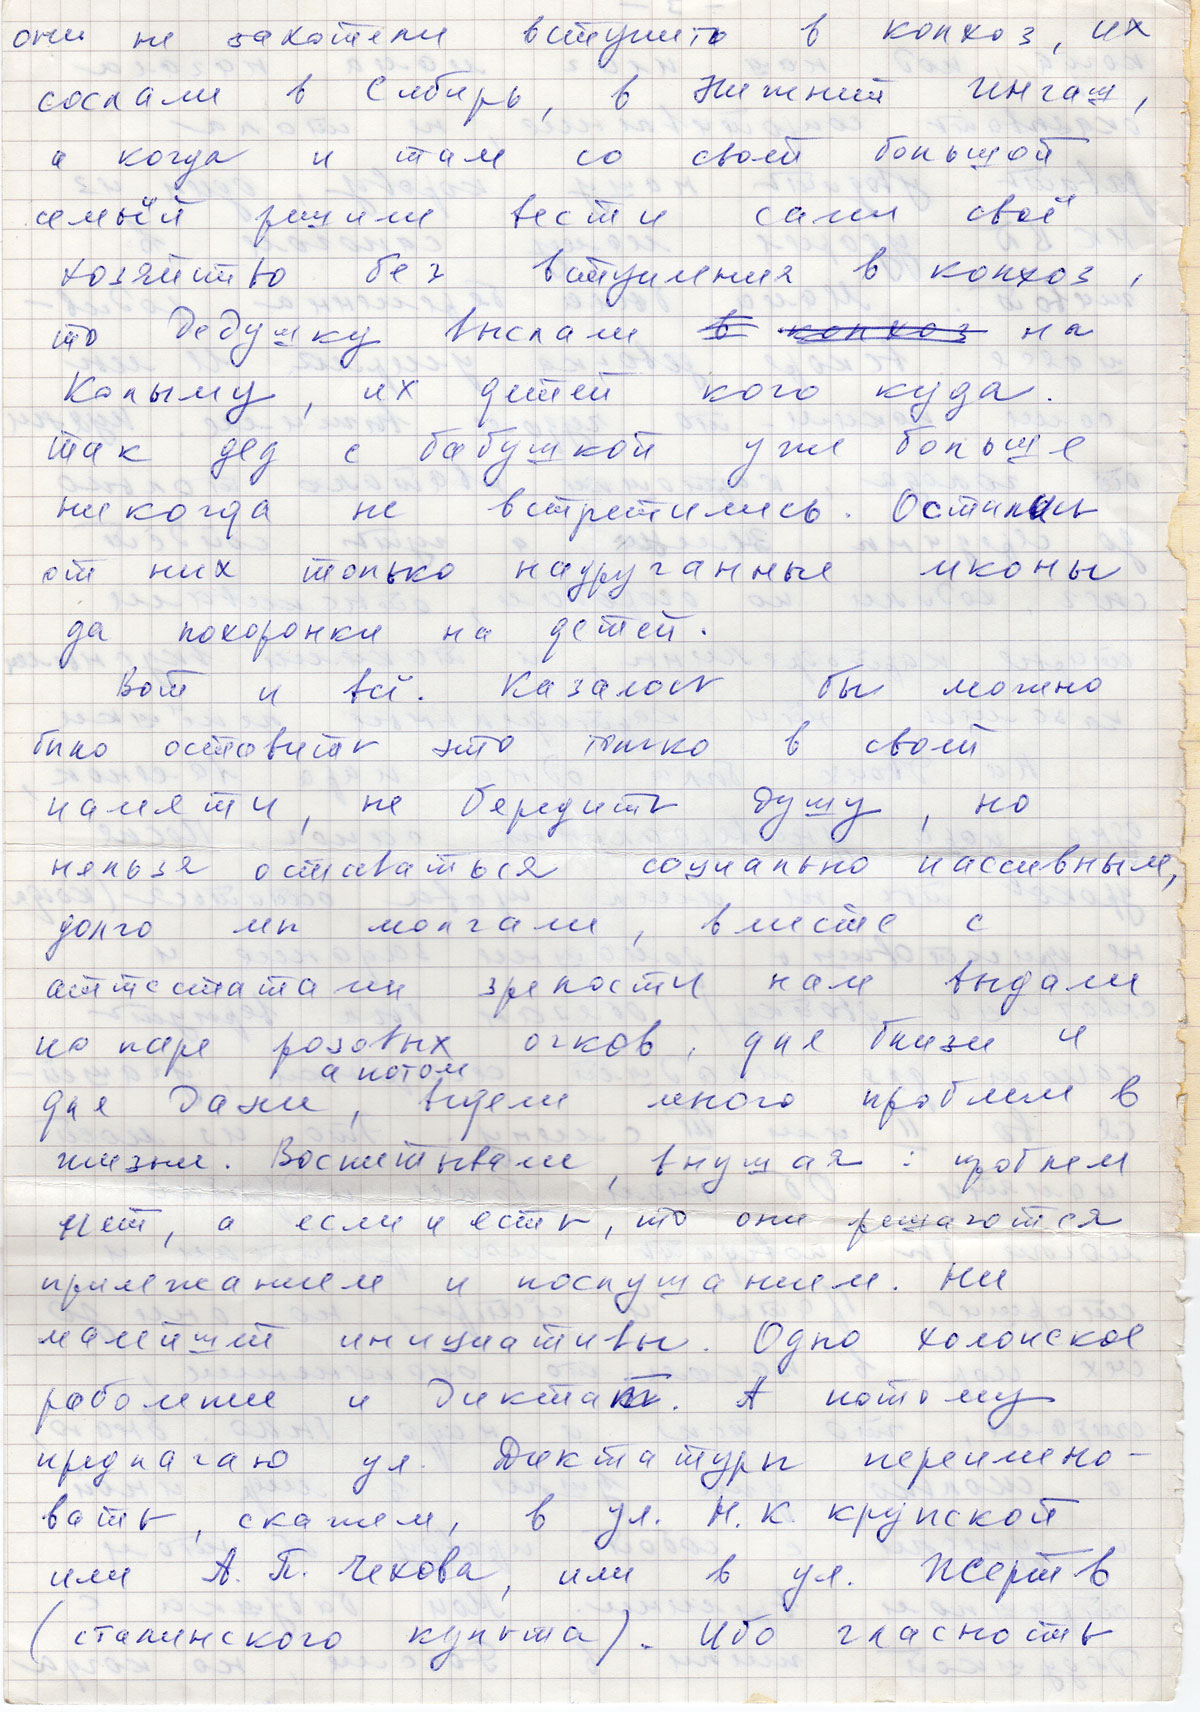 они не захотели вступить в колхоз, их
сослали в Сибирь, в Нижний Ингаш,
а когда и там со своей большой
семьёй решили вести сами своё
хозяйство без вступления в колхоз,
то дедушку выслали в колхоз на
Колыму, их детей кого куда.
Так дед с бабушкой уже больше
никогда не встретились. Остались
от них только надруганные иконы
да похоронки на детей.
Вот и всё. Казалось бы можно
было оставить это только в своей
памяти, не бередить душу, но
нельзя оставаться социально пассивным,
долго мы молчали, вместе с
аттестатами зрелости нам выдали
по паре розовых очков, для близи и
а потом
для дали, видели много проблем в
жизни. Воспитывали, внушая: проблем
нет, а если и есть, то они решаются
прилежанием и послушанием. Ни
малейшей инициативы. Одно холопское
раболепие и диктат. А потому
предлагаю ул. Диктатуры переимено-
вать, скажем, в ул. Н.К. Крупской
или А.П. Чехова, или в ул. Жертв
(сталинского культа). Ибо гласность